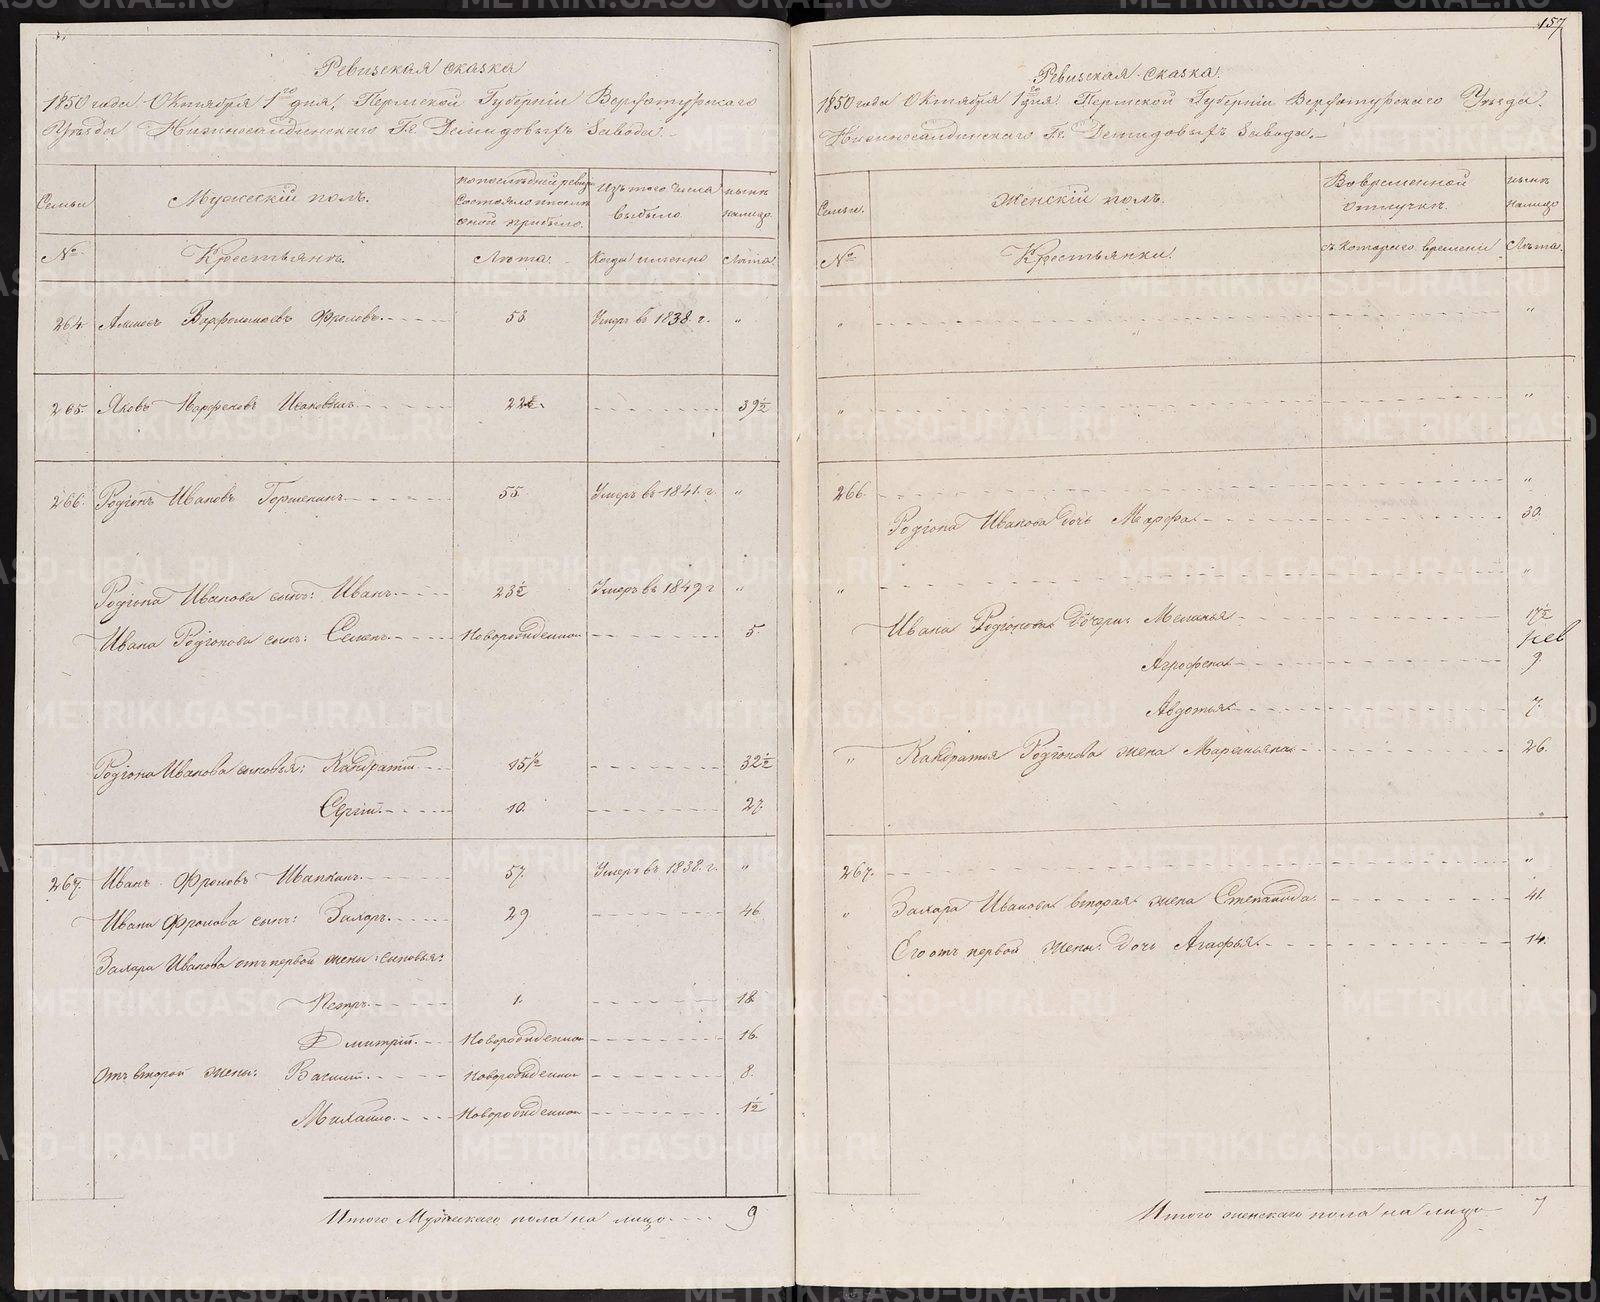 Ревизская сказка
1850 года Октября 1го дня, Пермской Губернии Верхотурскаго
Уезда Нижнесалдинскаго Гг. Демидовыхъ Завода
Семьи
Мужескій полъ.
по последней ревизіи
состояло и после
оной прибыло.
Изъ того числа
выбыло
ныне
налицо.
№
Крестьянъ.
Лета.
Когда именно
Лета.
264. Варфоломеевъ Фроловъ. 53 Умеръ въ 1838. г. "
265. Яковъ Парфеновъ 22½ 39½
266. Родіонъ Ивановъ 55. Умеръ въ 1841. г. "
Родіона Иванова сынъ: Иванъ. 23½ Умеръ въ 1849 г "
Ивана Родіонова сынъ: Семенъ. Новорожденной 5.
Родіона Иванова сыновья: Кандратій 15½ 32½
Сергій. 10. 27.
267. Иванъ Фроловъ 57. Умеръ въ 1838. г. "
Ивана Фролова сынъ: Захаръ. 29 46.
Захара Иванова отъ первой жены: сыновья:
Петръ. 1. 18.
Дмитрій. Новорожденной 16.
Отъ второй жены: Василій. Новорожденной 8.
Михайло. Новорожденной 1½
Итого Мужескаго пола на лицо. 9
157
Ревизская сказка.
1850 года Октября 1го дня. Пермской Губерніи Верхотурскаго Уезда.
Нижнесалдинскаго Гг. Демидовыхъ Завода.
Семьи.
Женскій полъ.
Во временной
отлучке.
ныне
налицо
№
Крестьянки.
съ котораго времени
Лета.
" "
" "
266. "
Родіона Иванова дочь Марфа. 30.
" "
Ивана Родіонова дочери: Меланья 17½
Агрофена 9.
Авдотья 7.
" Кандратья Родіонова жена Маремьяна 26.
267. "
" Захара Иванова вторая жена Степанида. 41.
Его отъ первой жены: дочь Агафья. 14.
Итого женскаго пола на лицо 7